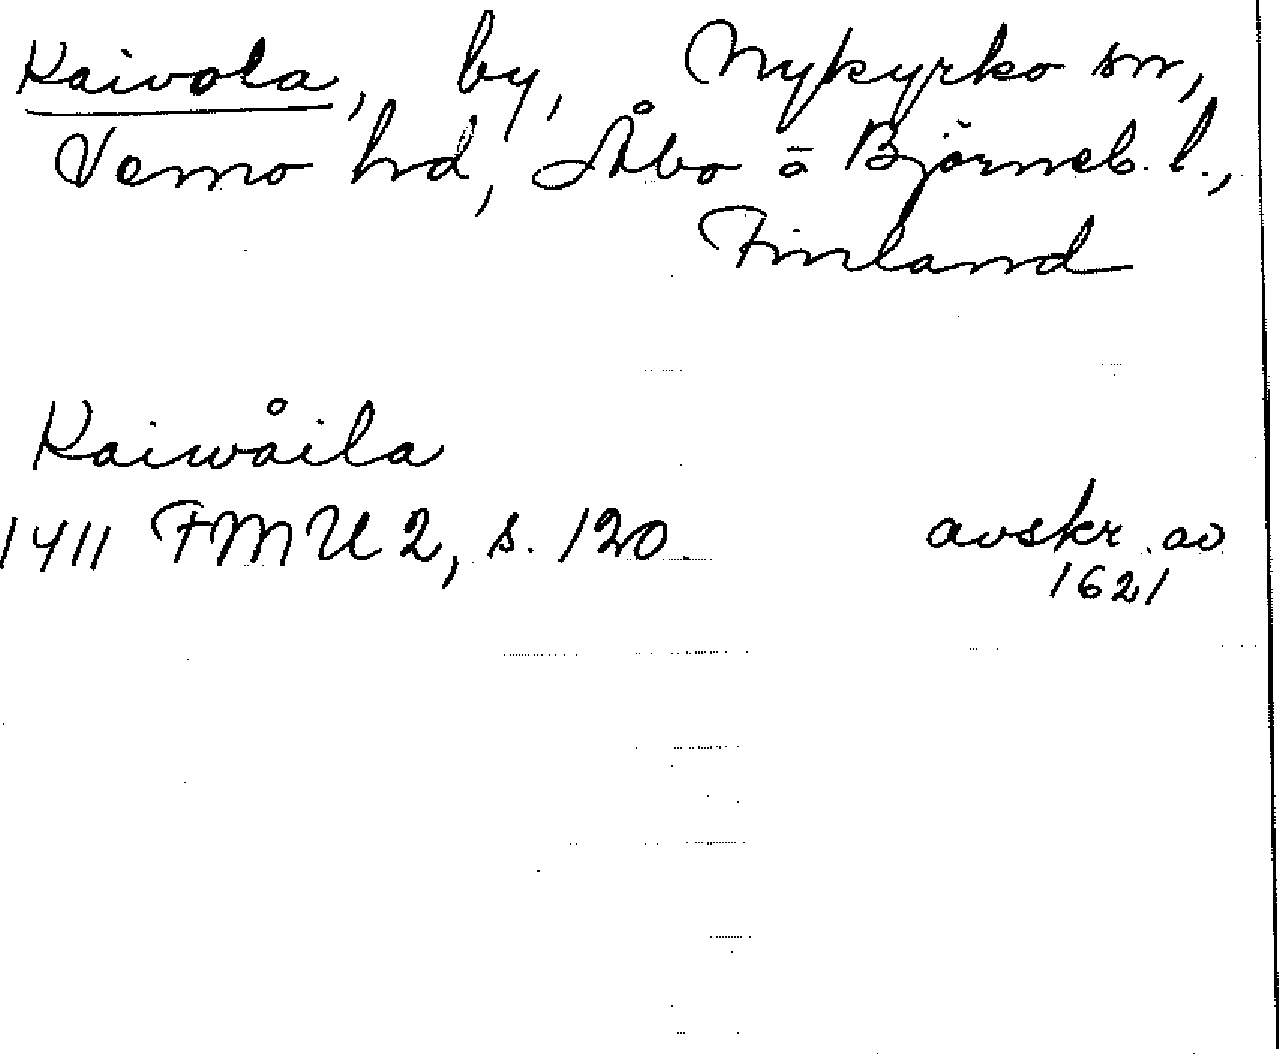 Kaivola, by, Nykyrko sn,
Vemo hd, Åbo o Björneb. l.,
Finland
Kaiwåila
1411 FMU 2, s. 120. avskr. av
1621